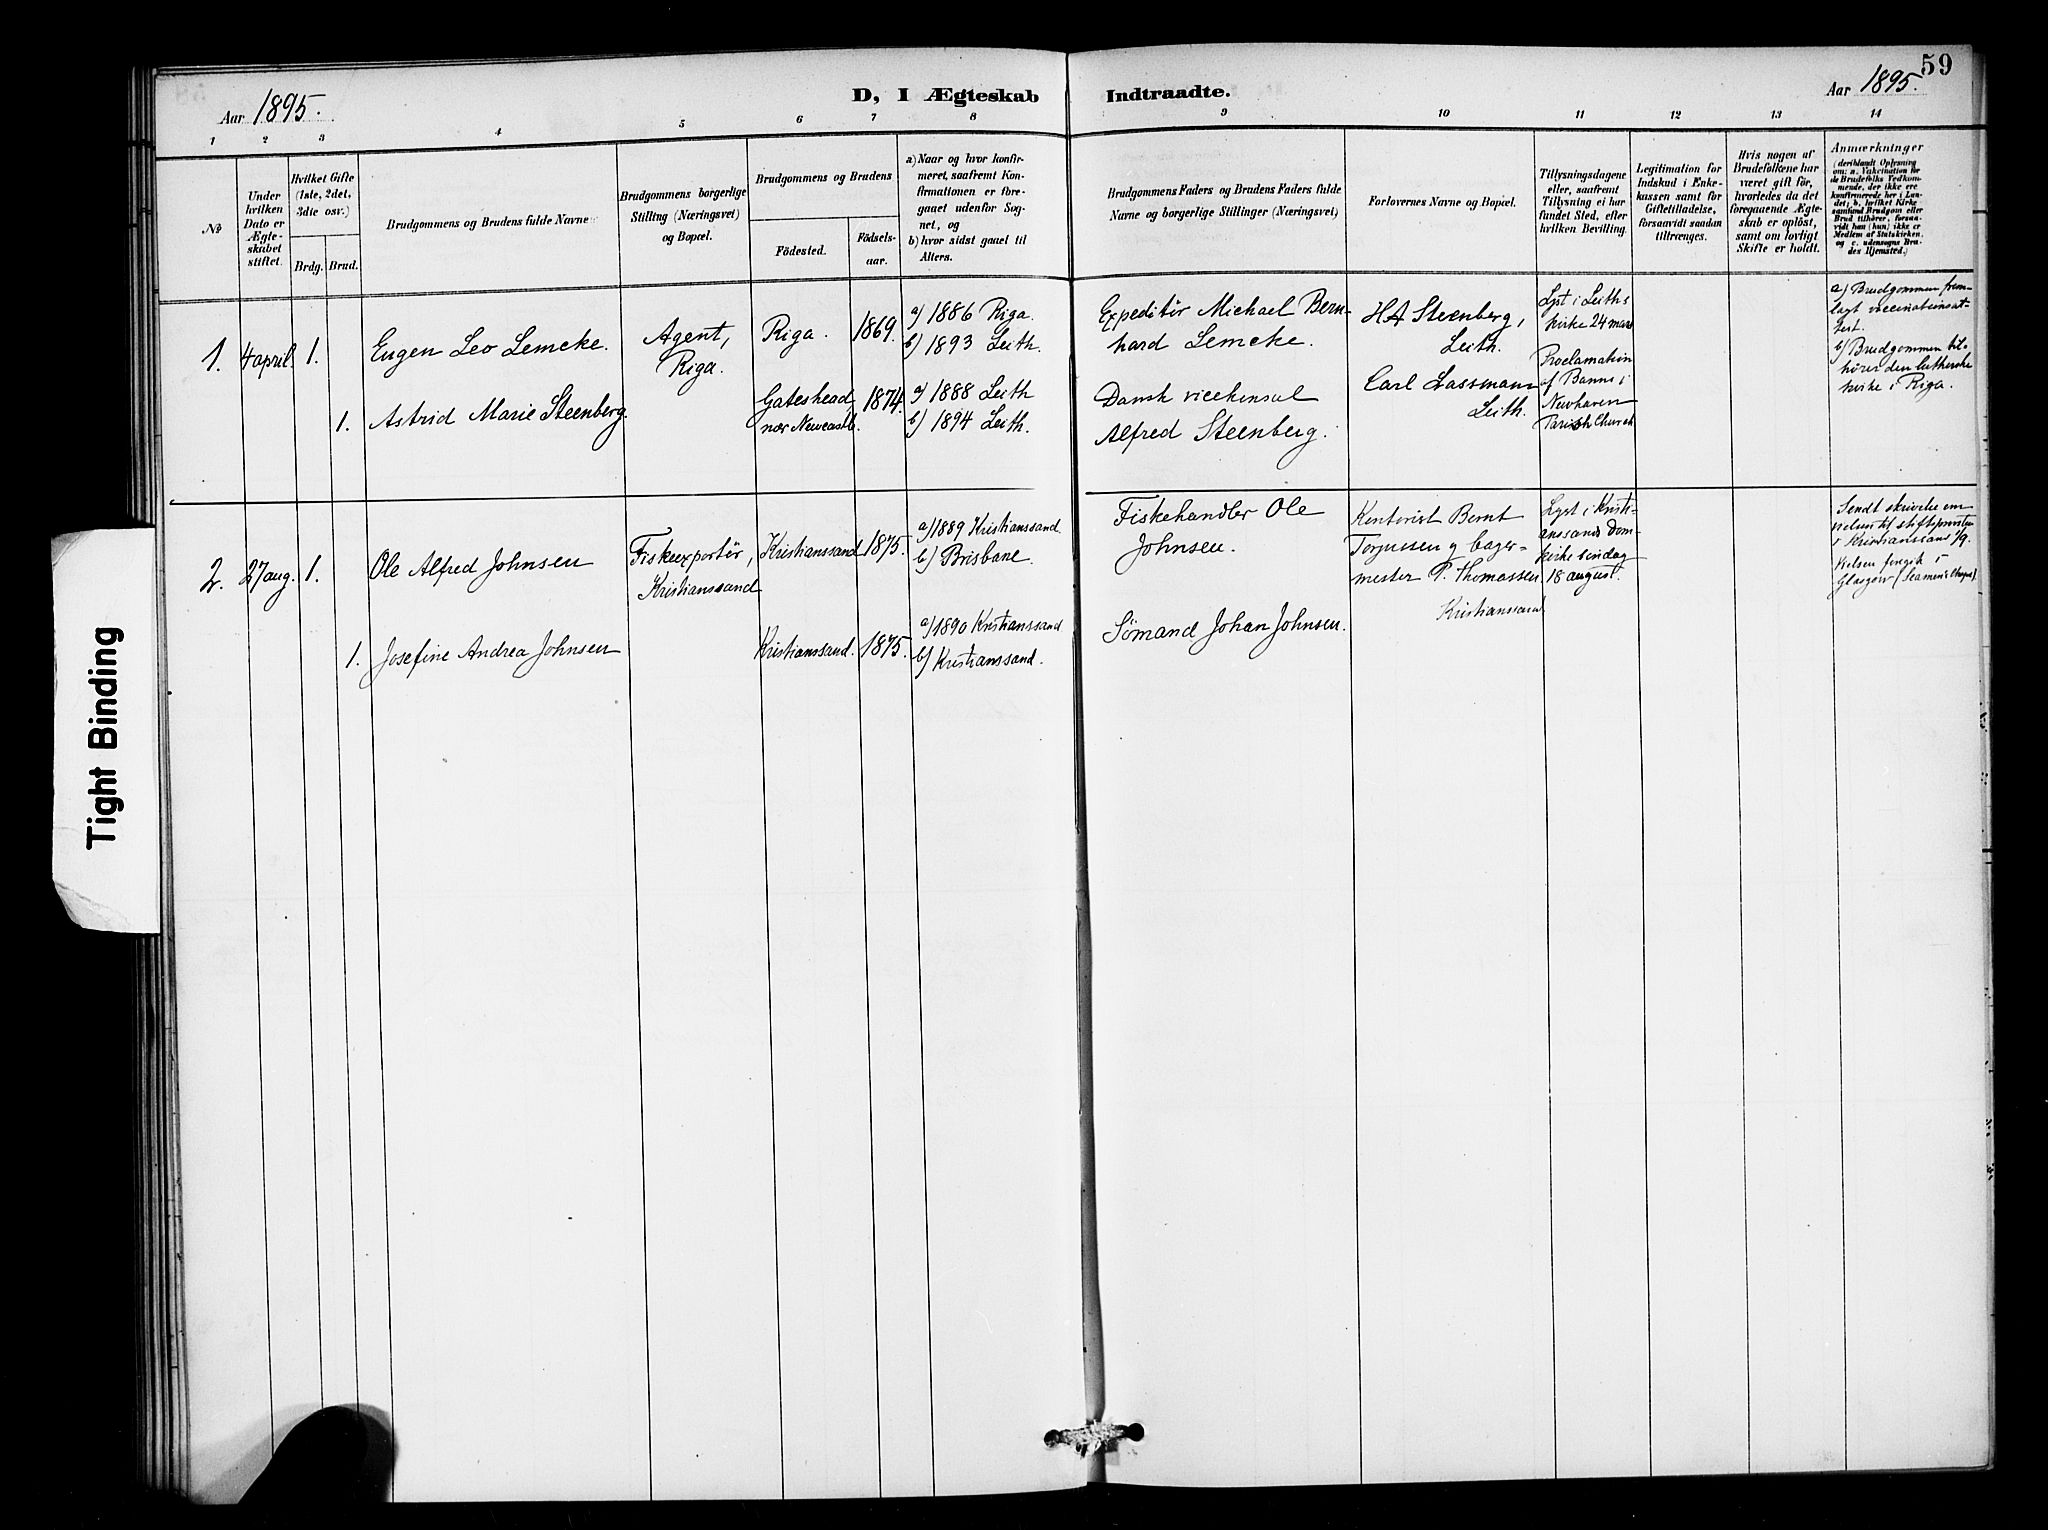 59
Aar 1895.
D, I Ægteskab Indtraadte.
Aar 1895.
1 2 3 4 5 6 7 8 9 10 11 12 13 14
No
Under
hvilken
Dato er
Ægte-
skabet
stiftet.
Hvilket Gifte
(1ste, 2det,
3die osv.)
Brdg. Brud.
Brudgommens og Brudens fulde Navne
Brudgommens borgerlige
Stilling (Næringsvei)
og Bopæl.
Brudgommens og Brudens
Födested.
Födsels-
aar.
a) Naar og hvor konfir-
meret, saafremt Kon-
firmationen er fore-
gaaet udenfor Sog-
net, og
b) hvor sidst gaaet til
Alters.
Brudgommens Faders og Brudens Faders fulde
Navne og borgerlige Stillinger (Næringsvei)
Forlovernes Navne og Bopæl.
Tillysningsdagene
eller, saafremt
Tillysning ei har
fundet Sted, efter
hvilken Bevilling.
Legitimation for
Indskud i Enke-
kassen samt for
Giftetilladelse,
forsaavidt saadan
tiltrænges.
Hvis nogen af
Brudefolkene har
været gift för,
hvorledes da det
foregaaende Ægte-
skab er oplöst,
samt om lovligt
Skifte er holdt.
Anmærkninger
(deriblandt Oplysning
om: a. Vakcination for
de Brudefolks Vedkom-
mende, der ikke ere
konfirmerede her i Lan-
det; b. hvilket Kirke
samfund Brudgom eller
Brud tilhörer, forsaa-
vidt han (hun) ikke er
Medlem af Statskirken,
og c. udensogns Bru-
des Hjemsted.)
1. 4 april. 1.
Eugen Leo Lemcke.
Agent,
Riga.
Riga. 1869.
a) 1886 Riga.
b) 1893 Leith.
Expeditör Michael Bern-
hard Lemcke.
HA Steenberg,
Leith.
Carl Lassmann
Leith.
Lyst i Leiths
kirke 24 mars
Proclamation
of Banns i
Newhaven
Parish Church
a) Brudgommen frem-
lagt vaccinationsat-
test.
b) Brudgommen til-
hörer den lutherske
kirke i Riga.
1. Astrid Marie Steenberg.
Gateshead
nær Newcastle.
1874.
a) 1888 Leith
b) 1894 Leith.
Dansk vicekonsul
Alfred Steenberg.
2. 27 aug. 1.
Ole Alfred Johnsen
Fiskeexportör,
Kristianssand
Kristianssand 1875.
a) 1889 Kristianssand
b) Brisbane.
Fiskehandler Ole
Johnsen.
Kontorist Bernt
Torjussen og bager-
mester P. Thomassen
Kristianssand
Lyst i Kristi-
anssands Dom-
kirke söndag
18 august.
Sendt skrivelse om
vielsen til stiftsprovsten
i Kristianssand
Vielsen foregik i
Glasgow (Seamen's Chapel).
1. Josefine Andrea Johnsen
Kristianssand. 1875.
a) 1890 Kristianssand
b) Kristianssand.
Sömand Johan Johnsen.
Tight Binding